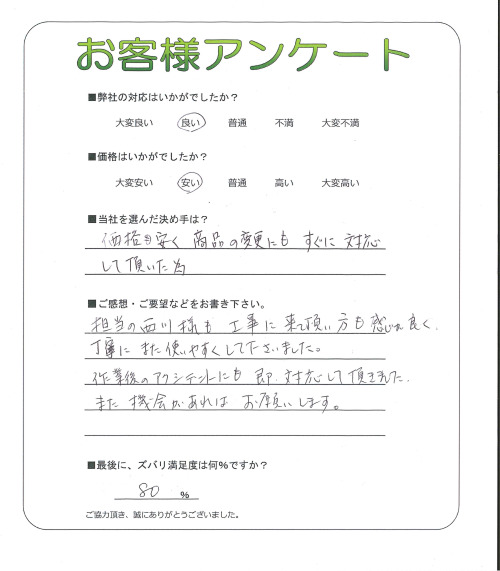 お客様アンケート
■弊社の対応はいかがでしたか？
大変良い 良い 普通 不満 大変不満
■価格はいかがでしたか？
大変安い 安い 普通 高い 大変高い
■当社を選んだ決め手は？
価格も安く 商品の変更にも すぐに 対応
して頂いた為
■ご感想・ご要望などをお書き下さい。
担当の西川様も 工事に来て頂い 方も 感じが良く、
丁寧に また 使いやすくして下さいました。
作業後のアクシデントにも 即 対応して頂きました。
また 機会があれば お願いします。
■最後に、ズバリ満足度は何％ですか？
80 %
ご協力頂き、誠にありがとうございました。